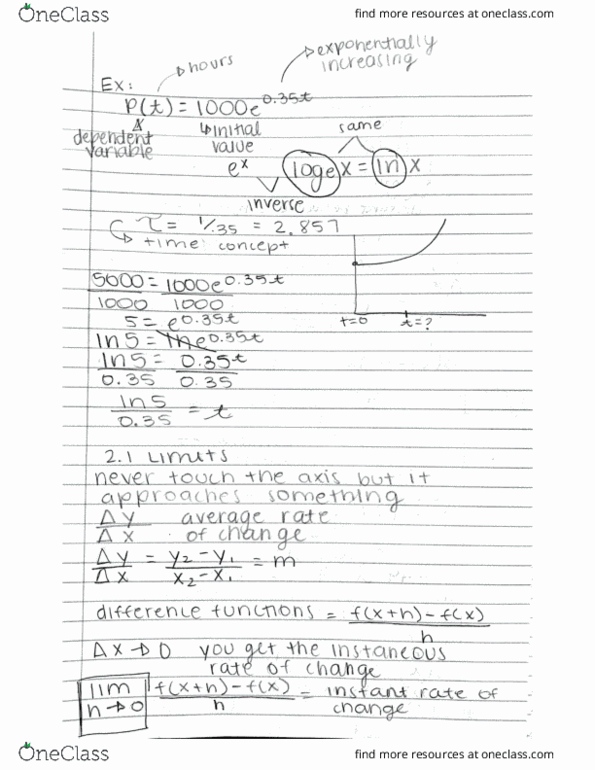 OneClass
find more resources at oneclass.com
exponentially
increasing
hours
Ex:
P(t) = 1000e^0.35t
dependent
variable
initial
value
same
e^x
loge x = ln x
inverse
τ = 1/.35 = 2.857
time concept
5000 = 1000e^0.35t
1000 1000
5 = e^0.35t
ln5 = lne^0.35t
ln5 = 0.35t
0.35 0.35
ln5
0.35 = t
t=0 t=?
2.1 Limits
never touch the axis but it
approaches something
Δy average rate
Δx of change
Δy = y2 - y1 = m
Δx x2 - x1
difference functions = f(x+h) - f(x)
h
Δx → 0 you get the instaneous
rate of change
lim f(x+h) - f(x) = instant rate of
h→0 h change
OneClass
find more resources at oneclass.com